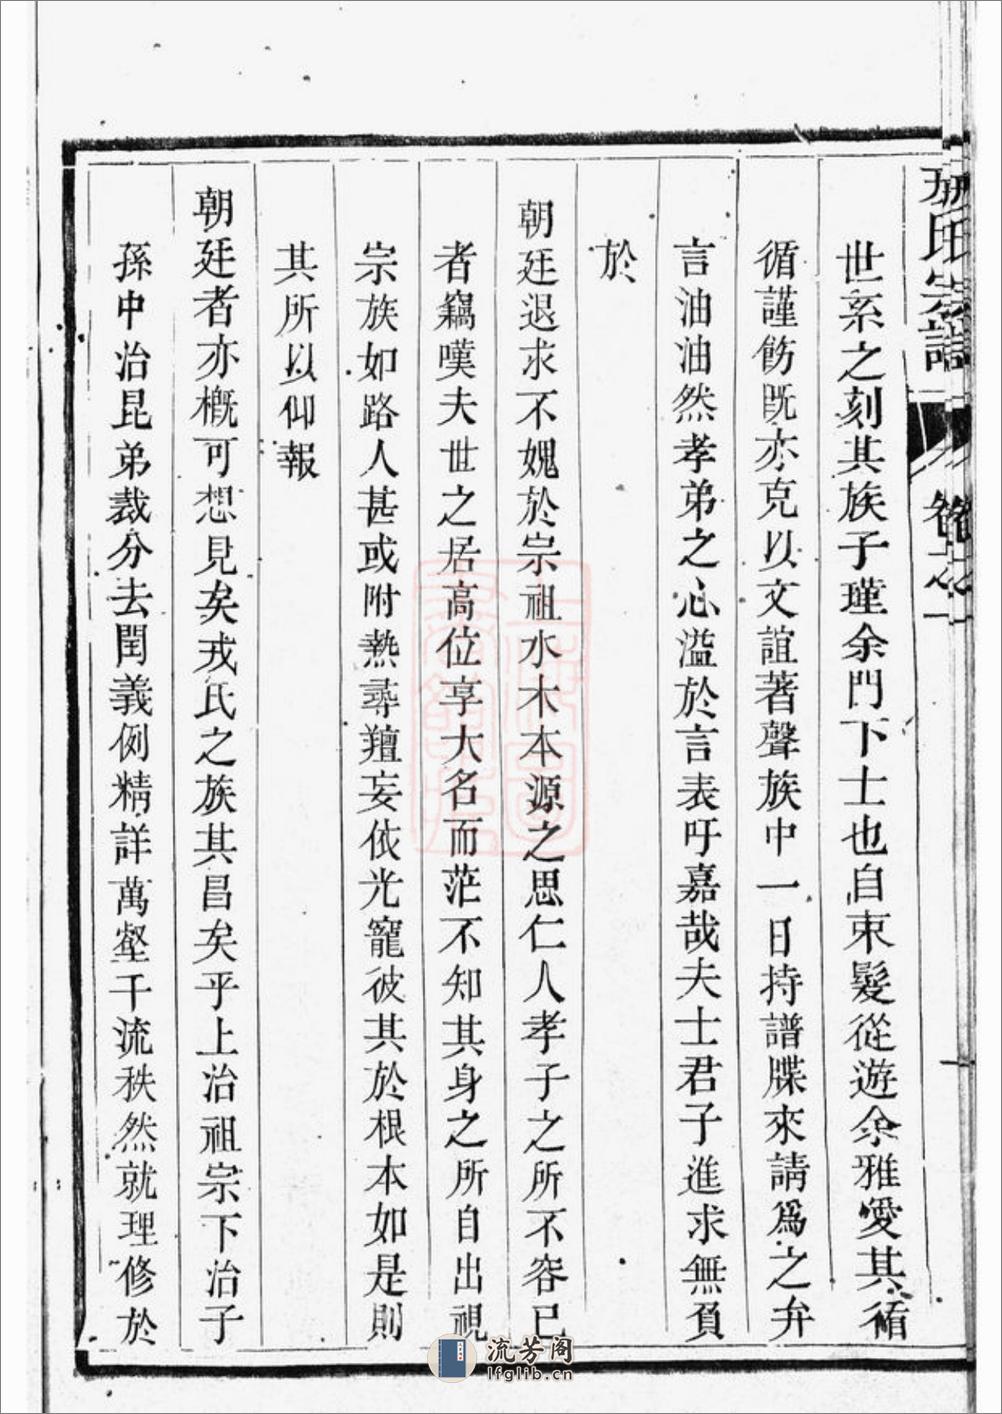 氏宗譜 卷之一
世系之刻其族子瑾余門下士也自束髮從遊余雅愛其循
循謹飭既亦克以文誼著聲族中一日持譜牒來請爲之弁
言油油然孝弟之心溢於言表吁嘉哉夫士君子進求無負
於
朝廷退求不媿於宗祖水木本源之思仁人孝子之所不容已
者竊嘆夫世之居高位享大名而茫不知其身之所自出視
宗族如路人甚或附熱尋羶妄依光寵彼其於根本如是則
其所以仰報
朝廷者亦概可想見矣戎氏之族其昌矣乎上治祖宗下治子
孫中治昆弟裁分去閏義例精詳萬壑千流秩然就理修於
流芳阁
lfglib.cn